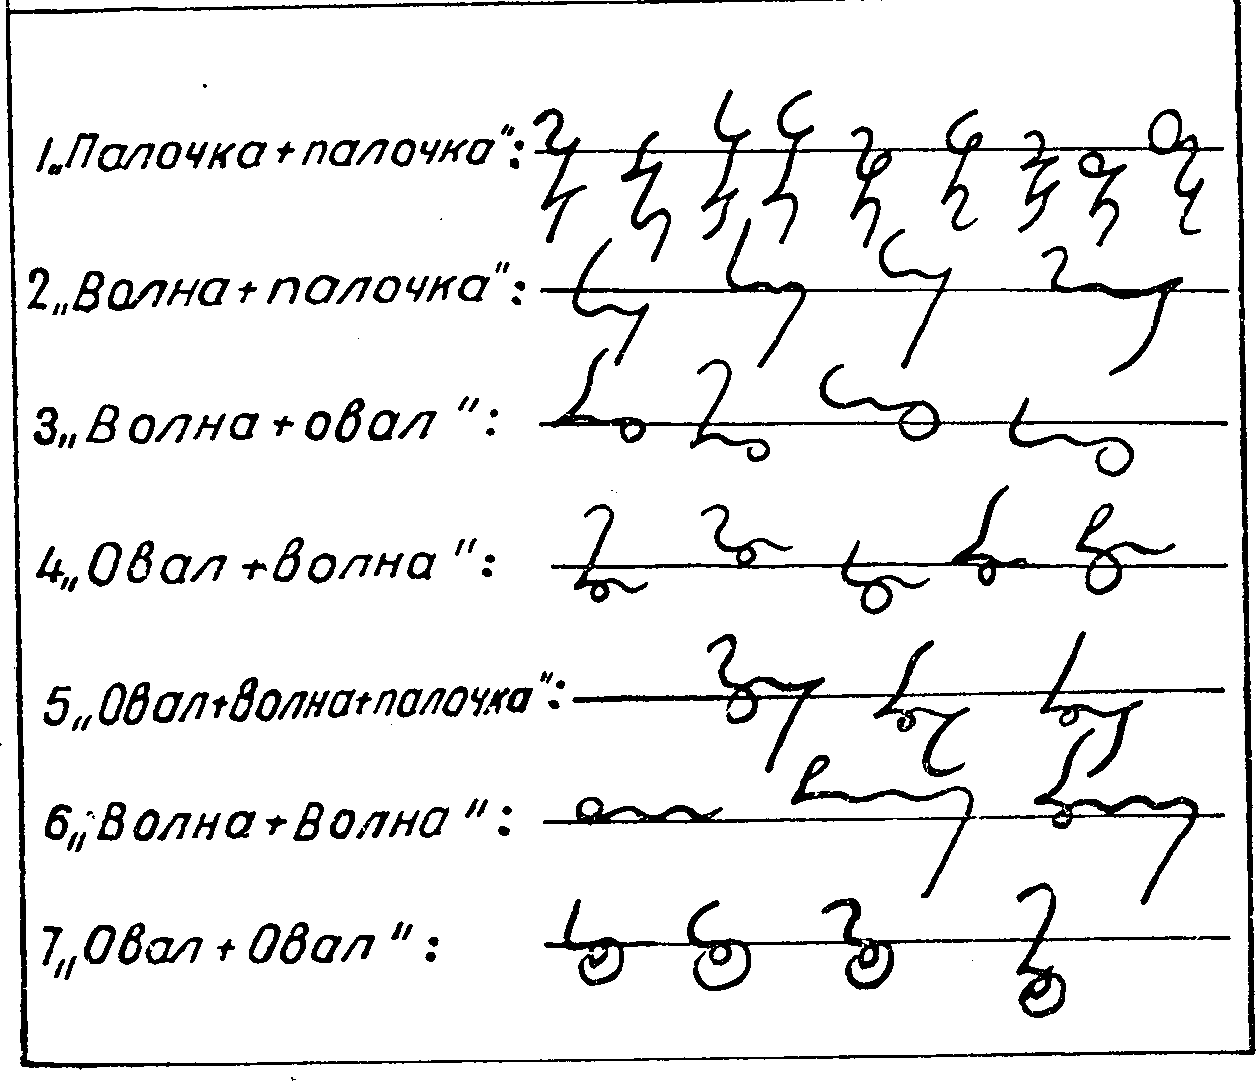 1„Палочка + палочка":
2„Волна + палочка":
3„Волна + овал":
4„Овал + волна":
5„Овал+волна+палочка":
6„Волна + Волна":
7„Овал + Овал":